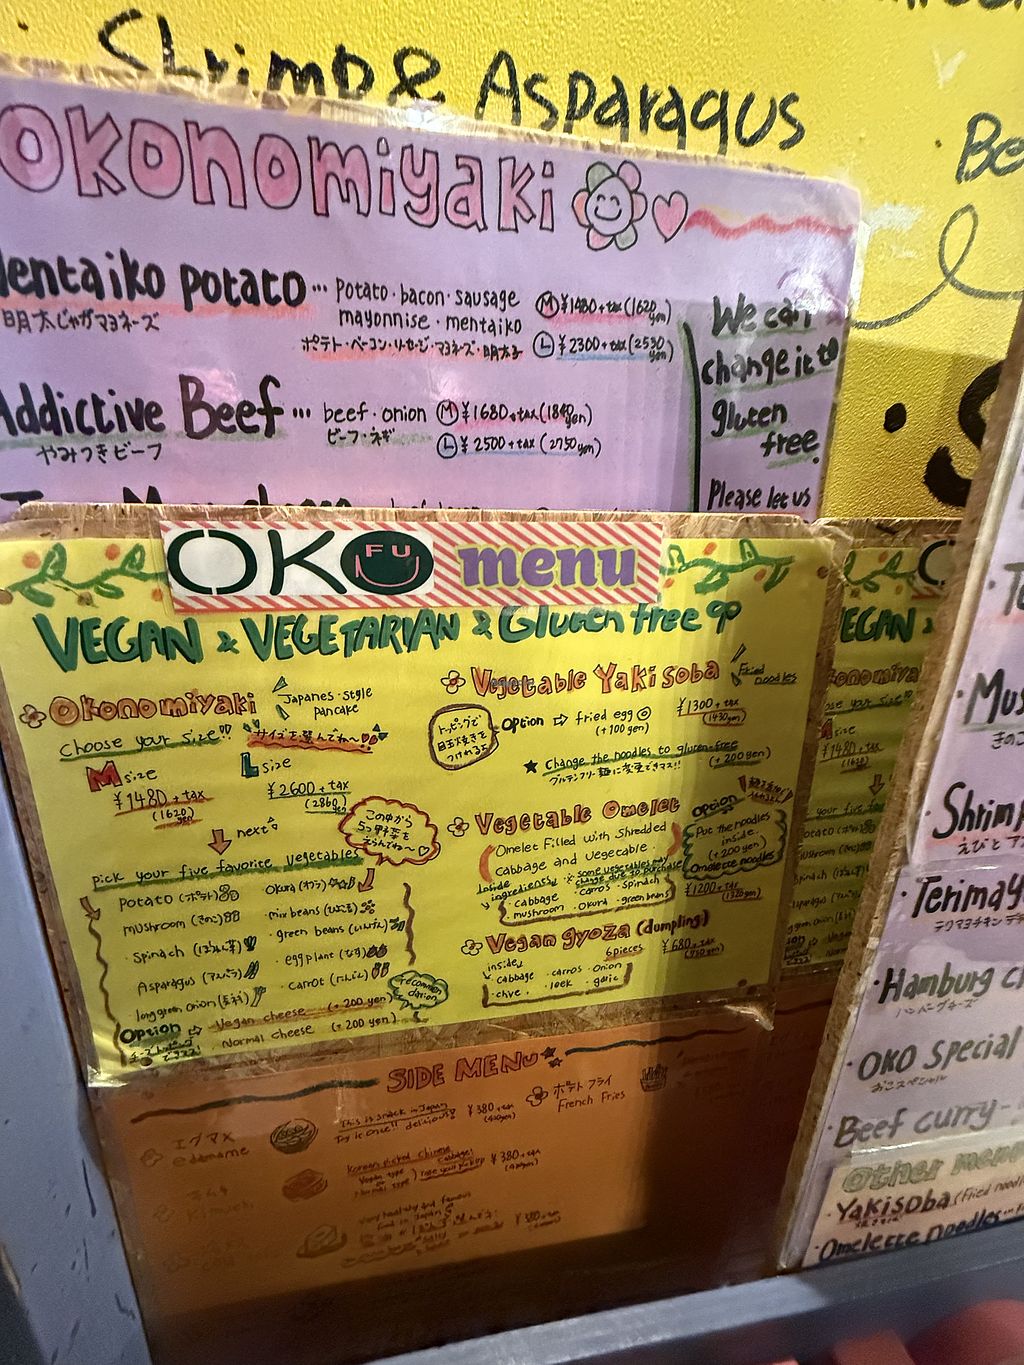 Shrimp & Asparagus
Okonomiyaki
Mentaiko potato ... potato・bacon・sausage
mayonnise・mentaiko
明太じゃがマヨネーズ
ポテト・ベーコン・ソーセージ・マヨネーズ・明太子
Ⓜ ¥1480+tax (1620yen)
Ⓛ ¥2300+tax (2530yen)
Addictive Beef ... beef・onion
やみつきビーフ
ビーフ・ネギ
Ⓜ ¥1680+tax (1840yen)
Ⓛ ¥2500+tax (2750yen)
We can
change it to
gluten
free.
Please let us
OKO FU menu
VEGAN & VEGETARIAN & Gluten free
Okonomiyaki
Japanes・style
pancake
choose your size!!
サイズを選んでね〜
M size
¥1480+tax
(1620)
L size
¥2600+tax
(2860yen)
next
この中から
5つ野菜を
えらんでね〜
pick your five favorite vegetables
potato (ポテト)
mushroom (きのこ)
・spinach (ほうれん草)
Asparagus (アスパラ)
・long green onion (長ネギ)
okura (オクラ)
・mix beans (ひよこ豆)
・green beans (いんげん)
・egg plant (なす)
・carrot (にんじん)
recommen
dation
Option ⇨ Vegan cheese (+200 yen)
Normal cheese (+200 yen)
Vegetable Yaki soba
Fried
noodles
¥1300+tax
(1430yen)
トッピングで
目玉焼きを
つけれるよ
option ⇨ fried egg
(+100 yen)
★ change the noodles to gluten-free
(+200 yen)
グルテンフリー麺に変更できマス!!
Vegetable Omelet
Omelet Filled with Shredded
Cabbage and Vegetable.
inside
ingredients
※some vegetables may
change due to purchase
・cabbage ・carros ・spinach
・mushroom ・okura ・green beans
option
Put the noodles
inside.
(+200yen)
Omelette noodles
¥1200+tax
(1320yen)
Vegan gyoza (dumpling)
6pieces
¥680+tax
(750yen)
inside
・cabbage ・carros ・onion
・chve ・leek ・garic
SIDE MENU
エダマメ
edamame
This is snack in Japan
Try is once!! delicious!
¥380+tax
ポテトフライ
French Fries
キムチ
Kimuchi
¥380+tax
Shrimp
えびと
Terimayo
Hamburg
ハンバーグチーズ
・OKO Special
おこスペシャル
・Beef curry
Other menu
・Yakisoba (Fried noodl
・Omelette noodles